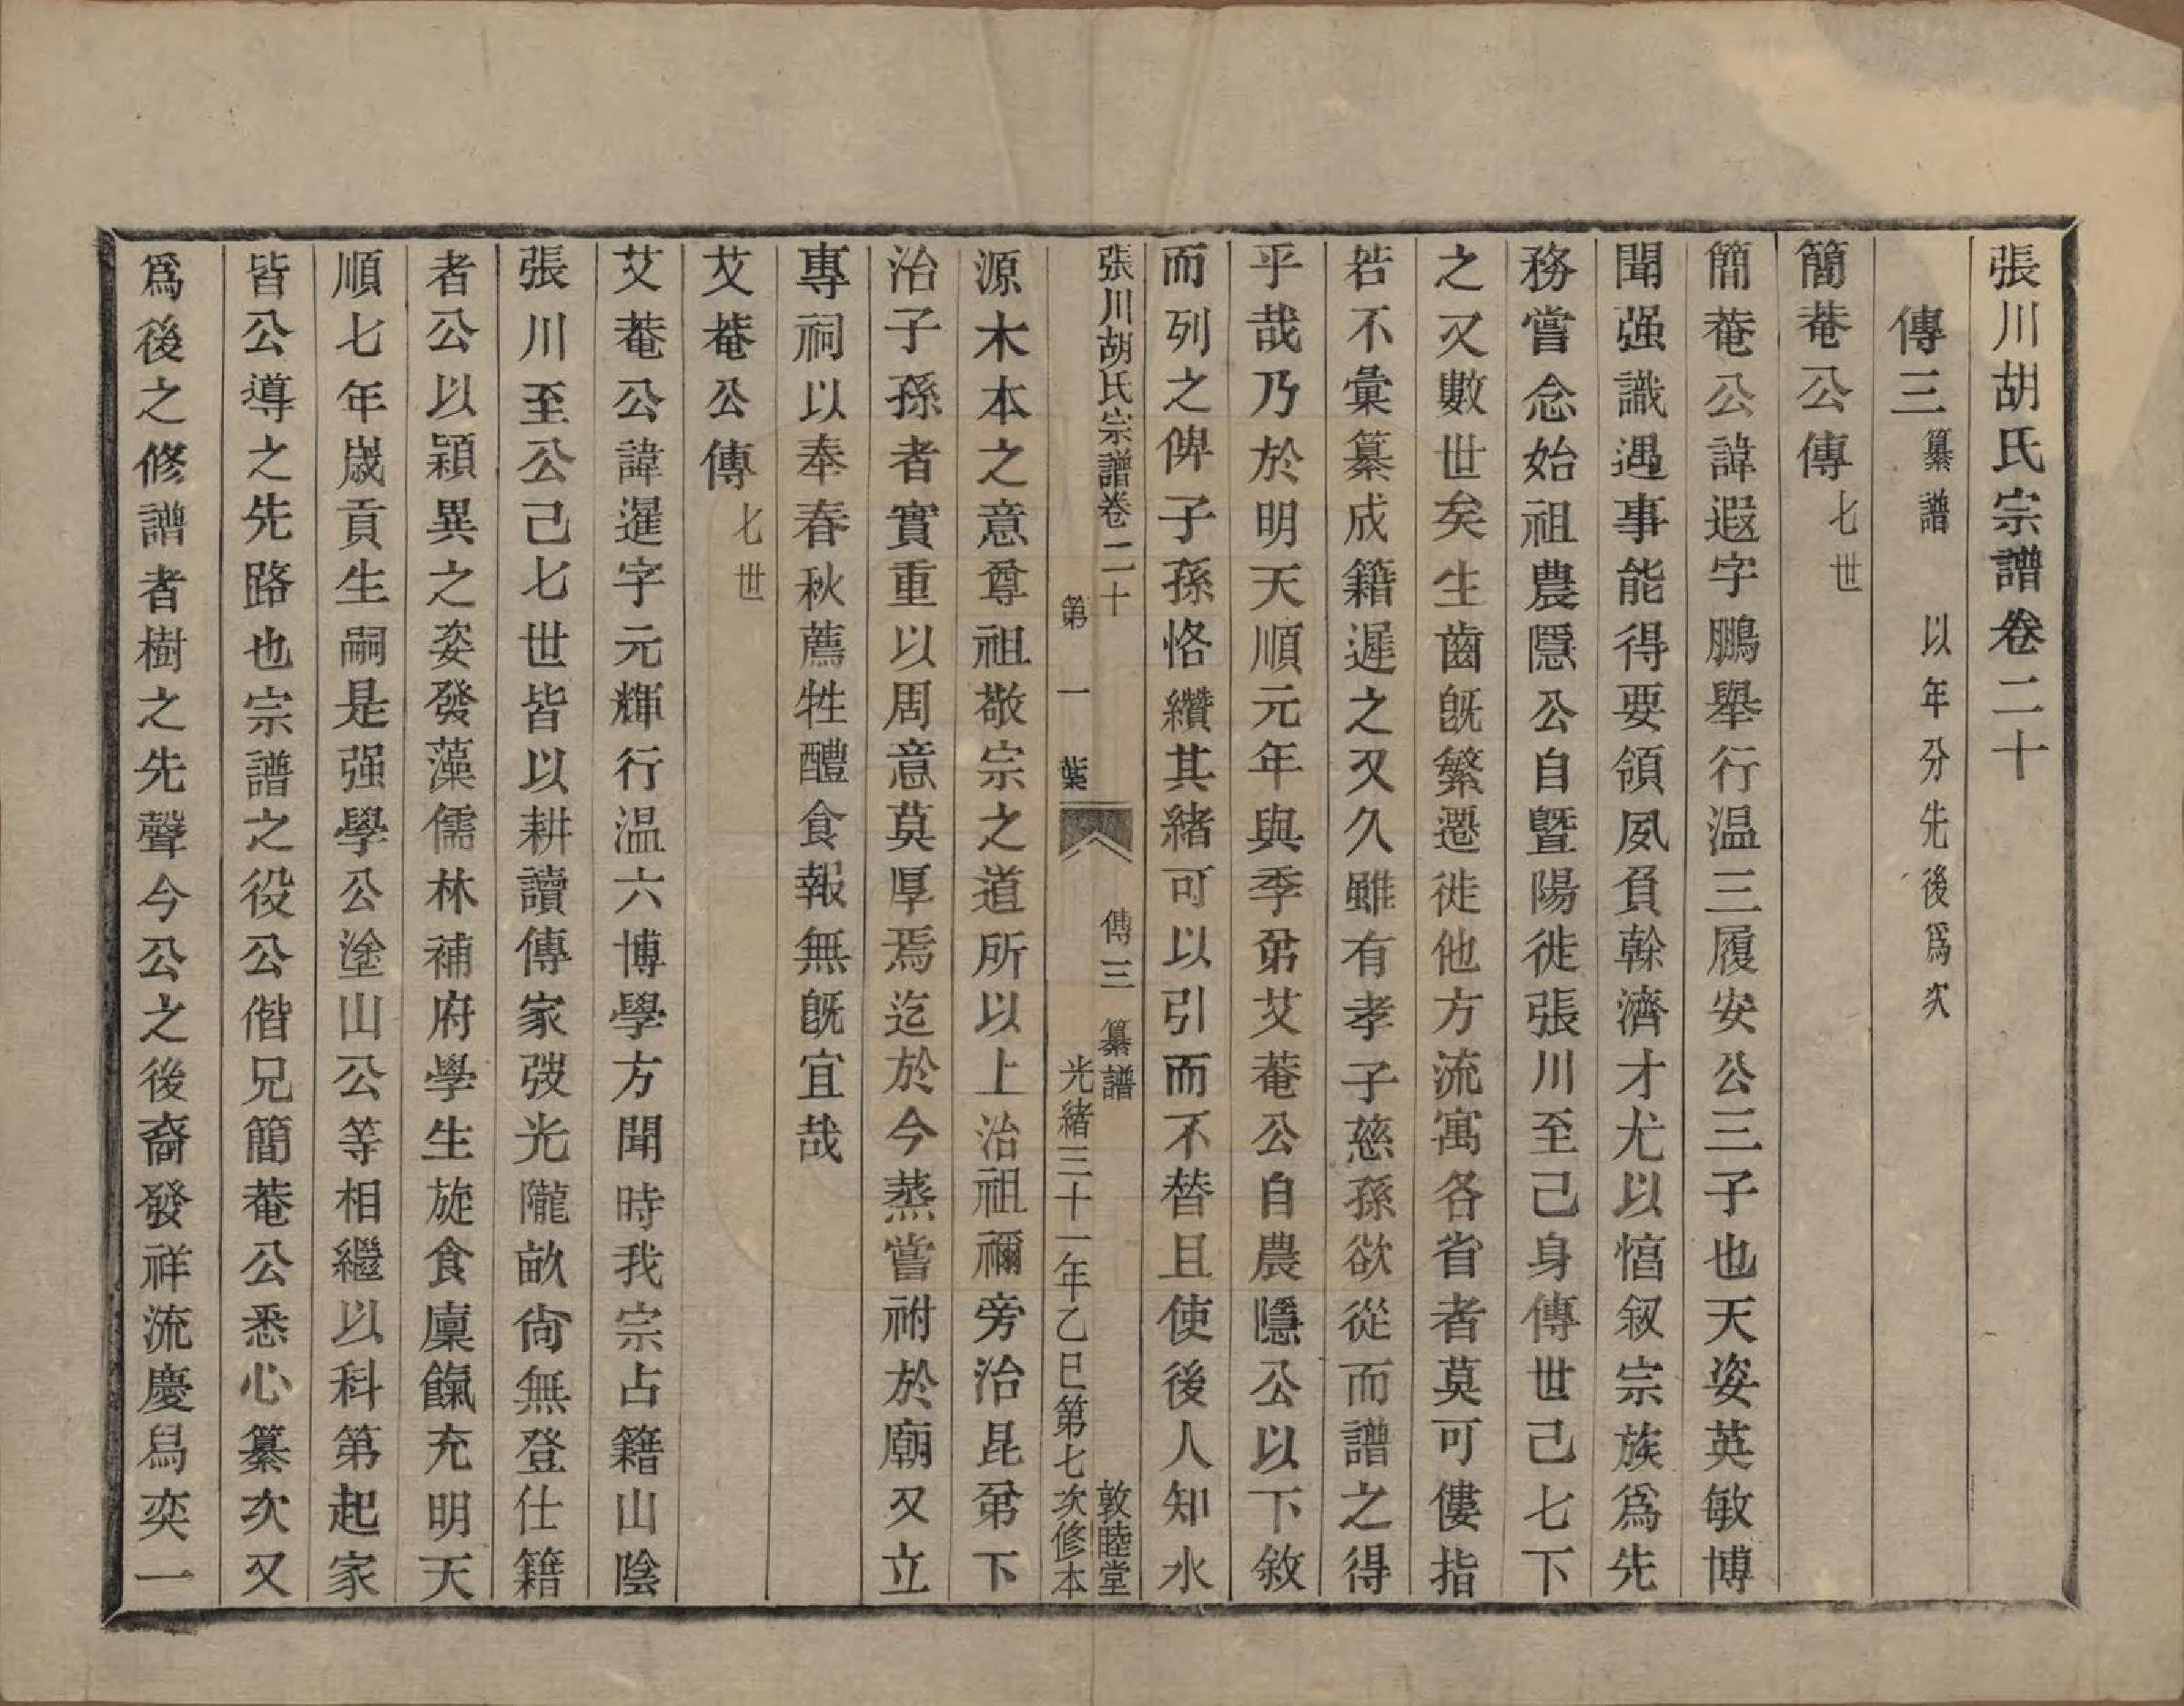 張川胡氏宗譜卷二十
傳三纂譜 以年分先後爲次
簡菴公傳七世
簡菴公諱遐字鵬舉行温三履安公三子也天姿英敏博
聞强識遇事能得要領夙負榦濟才尤以惇叙宗族爲先
務嘗念始祖農隱公自曁陽徙張川至己身傳世己七下
之又數世矣生齒旣繁遷徙他方流寓各省者莫可僂指
若不彙纂成籍遲之又久雖有孝子慈孫欲從而譜之得
乎哉乃於明天順元年與季弟艾菴公自農隱公以下敘
而列之俾子孫恪纘其緒可以引而不替且使後人知水
張川胡氏宗譜卷二十 傳三 纂譜 敦睦堂
第一葉 光緒三十一年乙巳第七次修本
源木本之意尊祖敬宗之道所以上治祖禰旁治昆弟下
治子孫者實重以周意莫厚焉迄於今蒸嘗祔於廟又立
專祠以奉春秋薦牲醴食報無旣宜哉
艾菴公傳七世
艾菴公諱暹字元輝行温六博學方聞時我宗占籍山陰
張川至公己七世皆以耕讀傳家弢光隴畝尙無登仕籍
者公以穎異之姿發藻儒林補府學生旋食廩餼充明天
順七年歲貢生嗣是强學公塗山公等相繼以科第起家
皆公導之先路也宗譜之役公偕兄簡菴公悉心纂次又
爲後之修譜者樹之先聲今公之後裔發祥流慶舄奕一